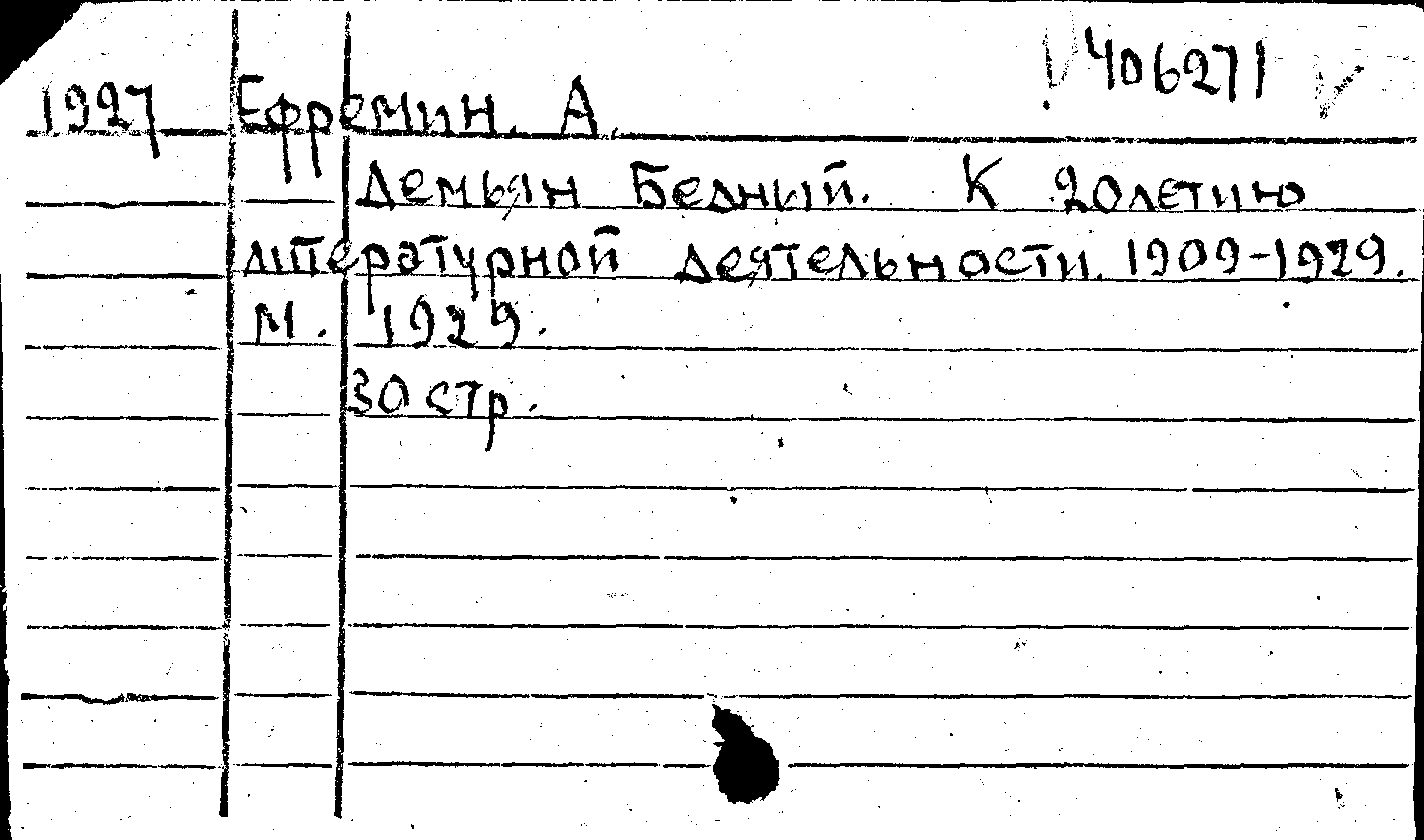 406271
1927 Ефремин. А.
Демьян Бедный. К 20летию
литературной деятельности. 1909-1929.
М. 1929.
30 стр.